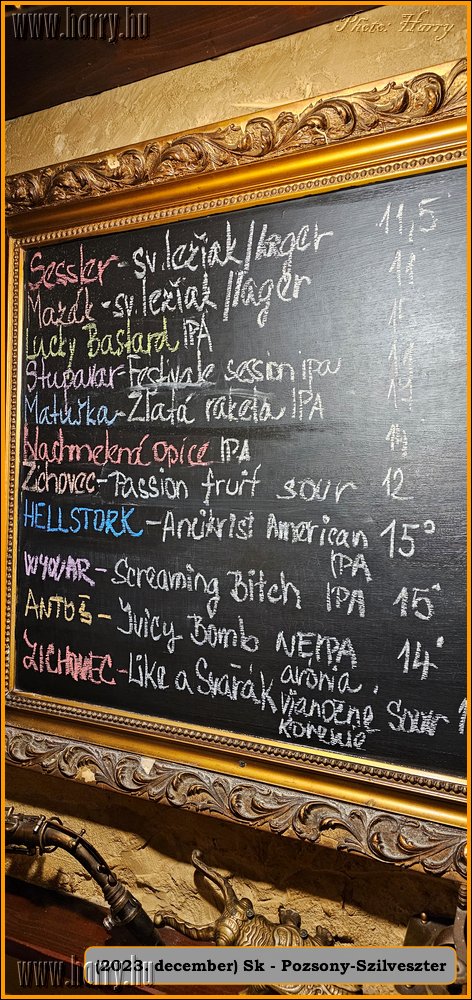 www.harry.hu
Photo: Harry
Sessler - sv. ležiak / lager 11,5
Mazák - sv. ležiak / lager 11
Lucky Bastard IPA
Stupavar - Festivale session ipa
Matuška - Zlatá raketa IPA
Nachmelená opice IPA
Zichovec - Passion fruit sour 12
HELLSTORK - Ancikrist American IPA 15°
WYWAR - Screaming Bitch IPA 15°
ANTOŠ - Juicy Bomb NEIPA 14°
ZICHOWEC - Like a Svařák aronia, vianočné korenie sour
www.harry.hu
(2023. december) Sk - Pozsony-Szilveszter